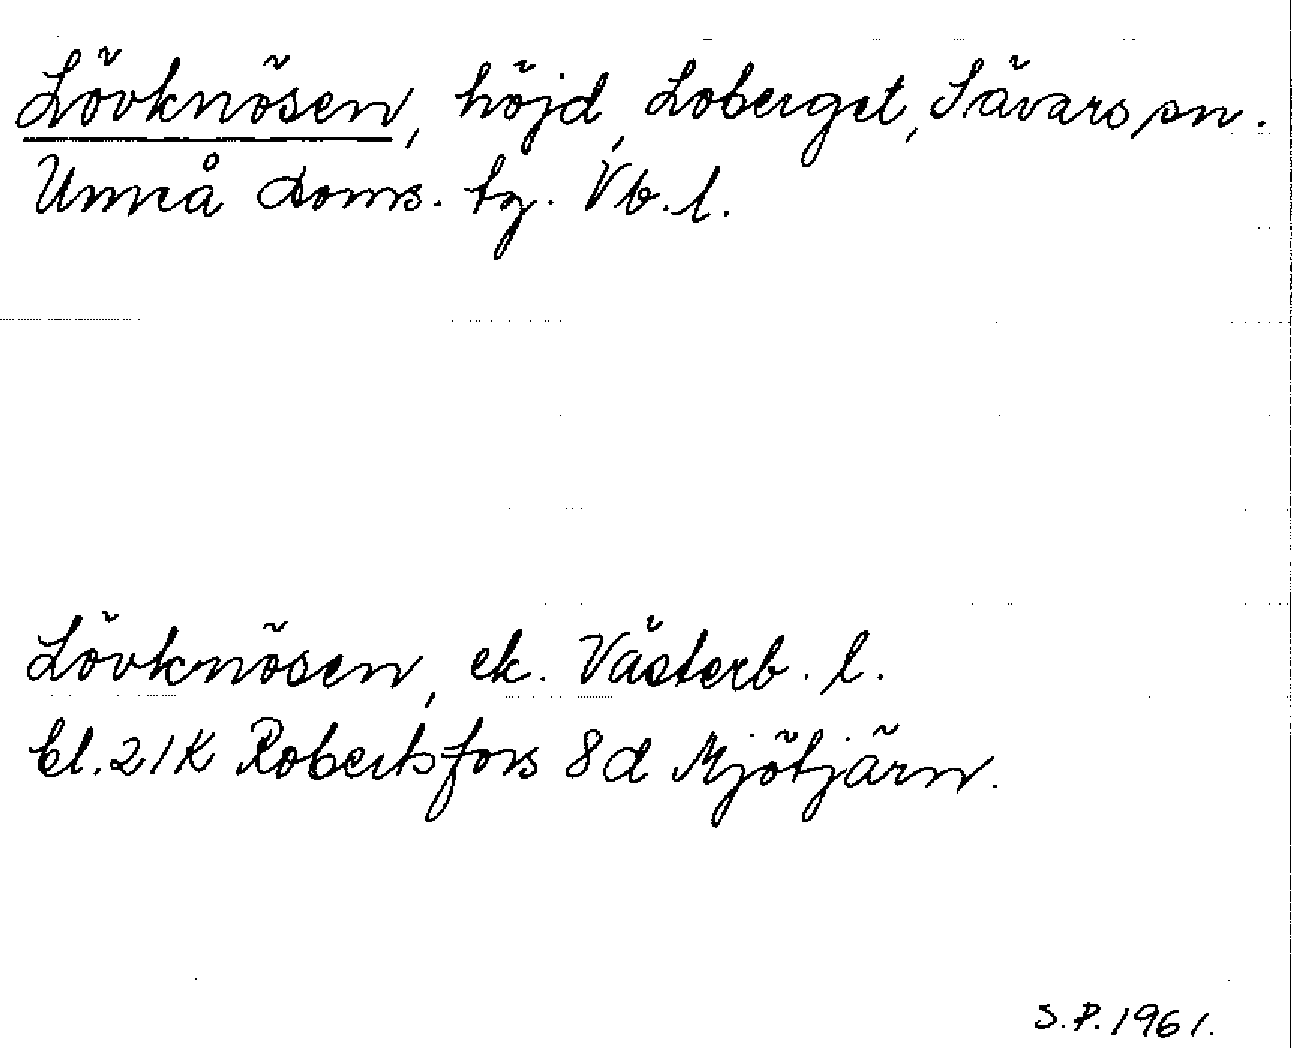 Lövknösen, höjd, Loberget, Sävars sn.
Umeå doms. tg. Vb. l.
Lövknösen, ek. Västerb. l.
bl. 21K Robertsfors 8d Mjötjärn.
S.P. 1961.